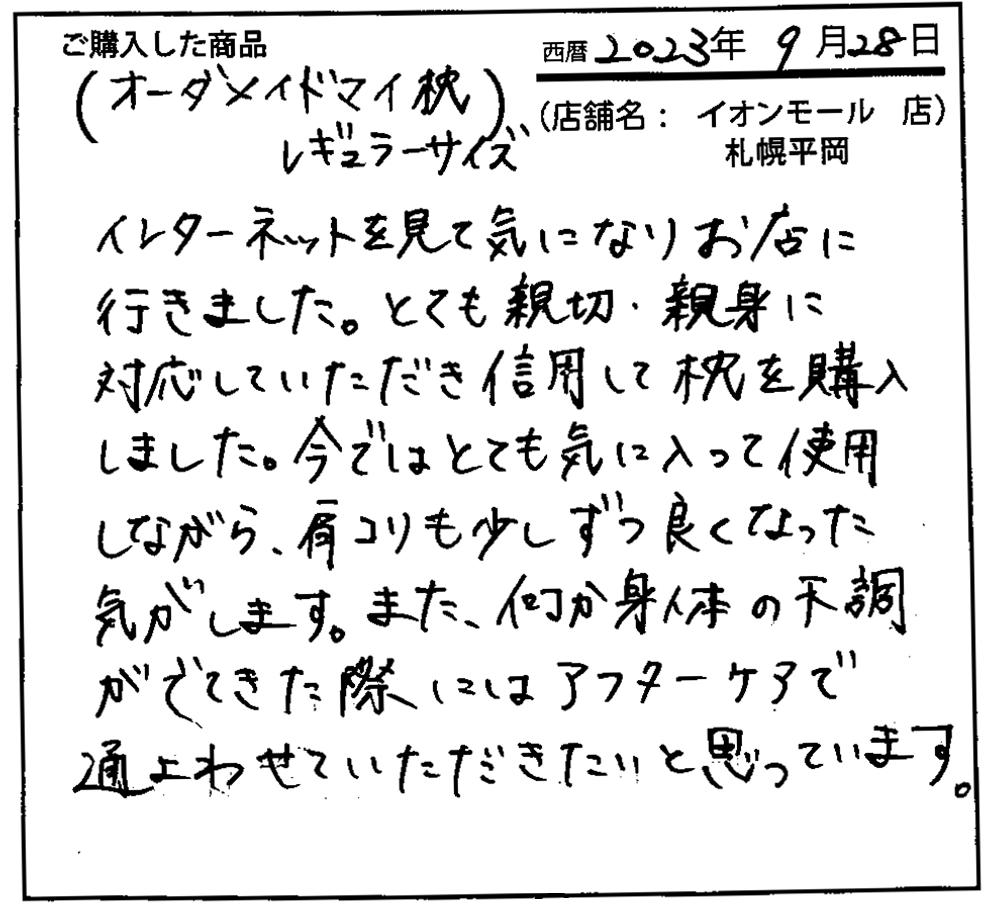 ご購入した商品
西暦 2023年 9月28日
(オーダメイドマイ枕)
レギュラーサイズ
(店舗名: イオンモール 店)
札幌平岡
インターネットを見て気になりお店に
行きました。とても親切・親身に
対応していただき信用して枕を購入
しました。今ではとても気に入って使用
しながら、肩コリも少しずつ良くなった
気がします。また、何か身体の不調
がでてきた際にはアフターケアで
通よわせていただきたいと思っています。